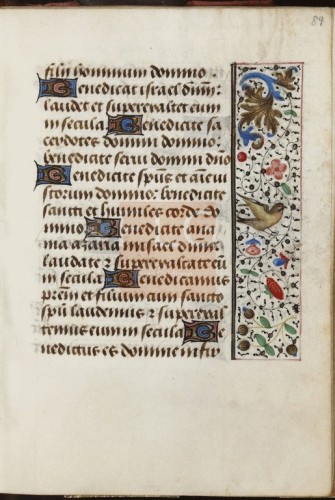 84
filii hominum domino
Benedicat israel dnm:
laudet et superexaltet eum
in secula Benedicite sa
cerdotes domini domino
benedicite serui domini dno
Benedicite spus et aaie iu
storum domino: benedicite
sancti et humiles corde do
mino Benedicite ana
nia azaria misael dnm:
laudate ⁊ superexaltate eu
in secula Benedicamus
prem et filium cum sancto
spu laudemus ⁊ superexal
temus eum in secula Be
nedictus es domine in fir